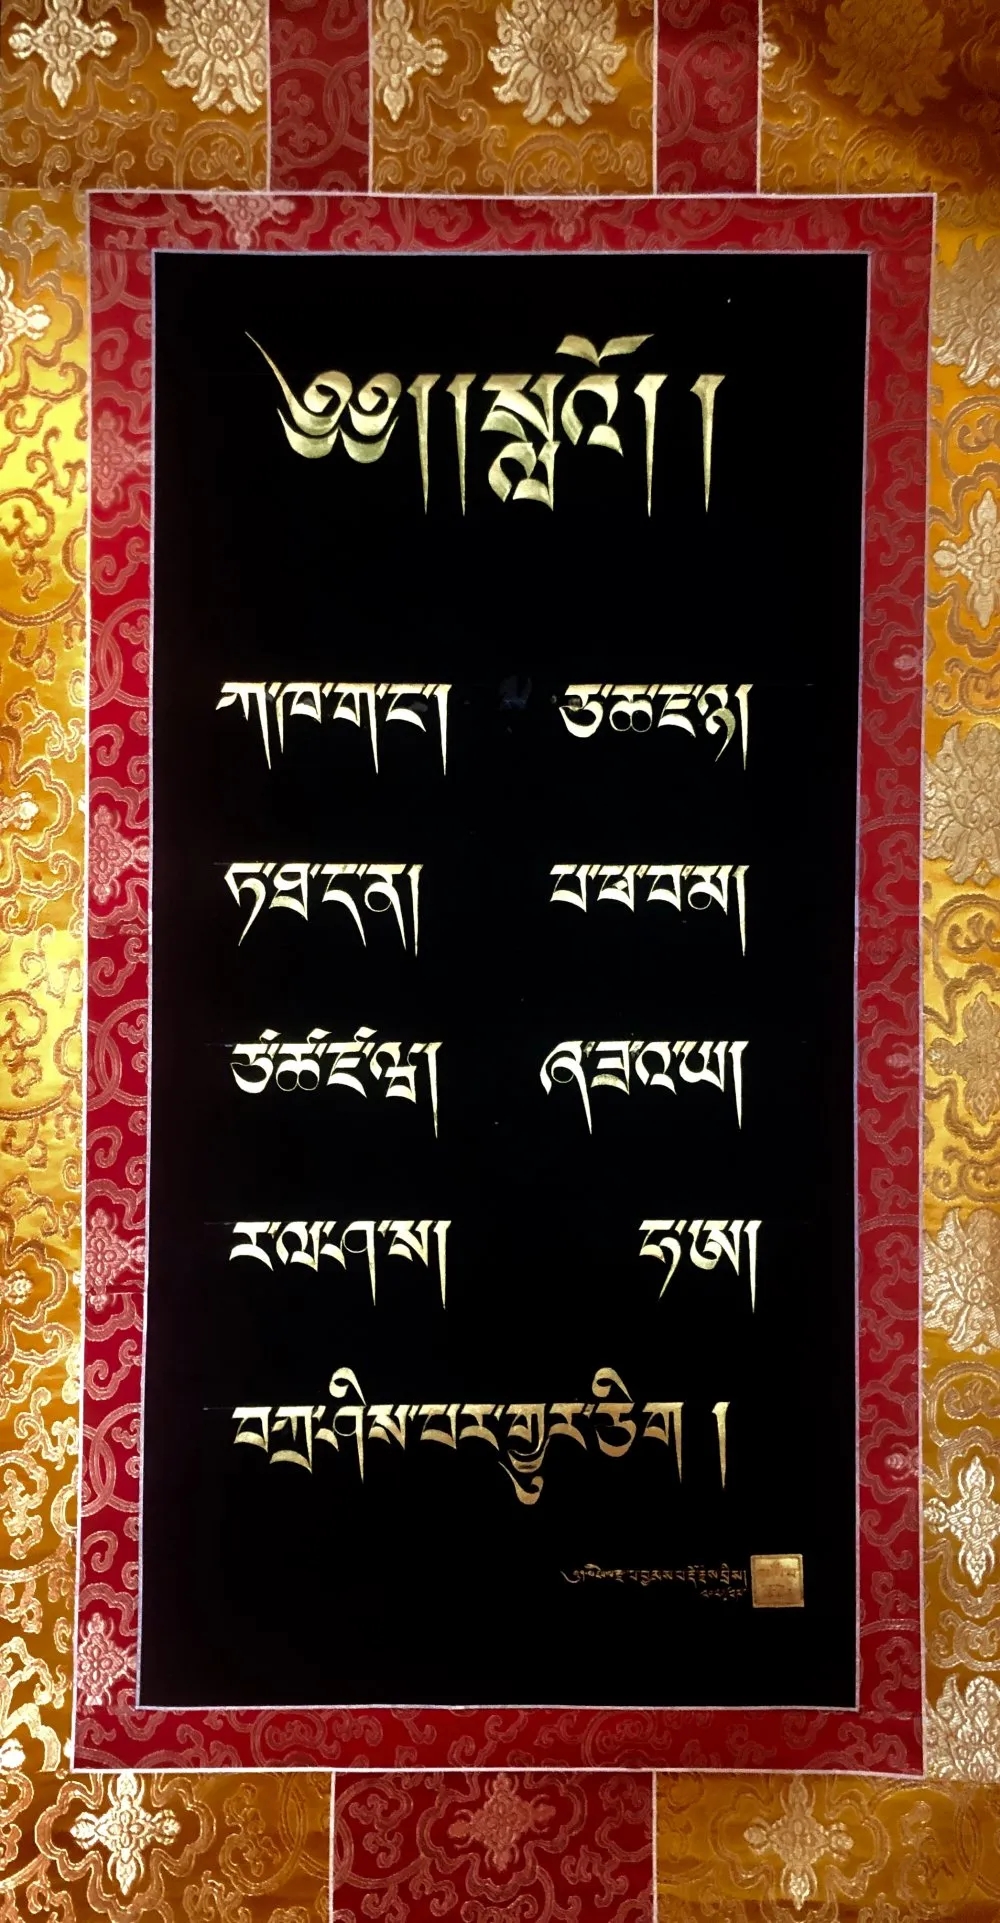 ༄༅། །སླའོ། །
ཀ་ཁ་ག་ང་། ཅ་ཆ་ཇ་ཉ།
ཏ་ཐ་ད་ན། པ་ཕ་བ་མ།
ཙ་ཚ་ཛ་ཝ། ཞ་ཟ་འ་ཡ།
ར་ལ་ཤ་ས། ཧ་ཨ།
བཀྲ་ཤིས་པར་གྱུར་ཅིག །